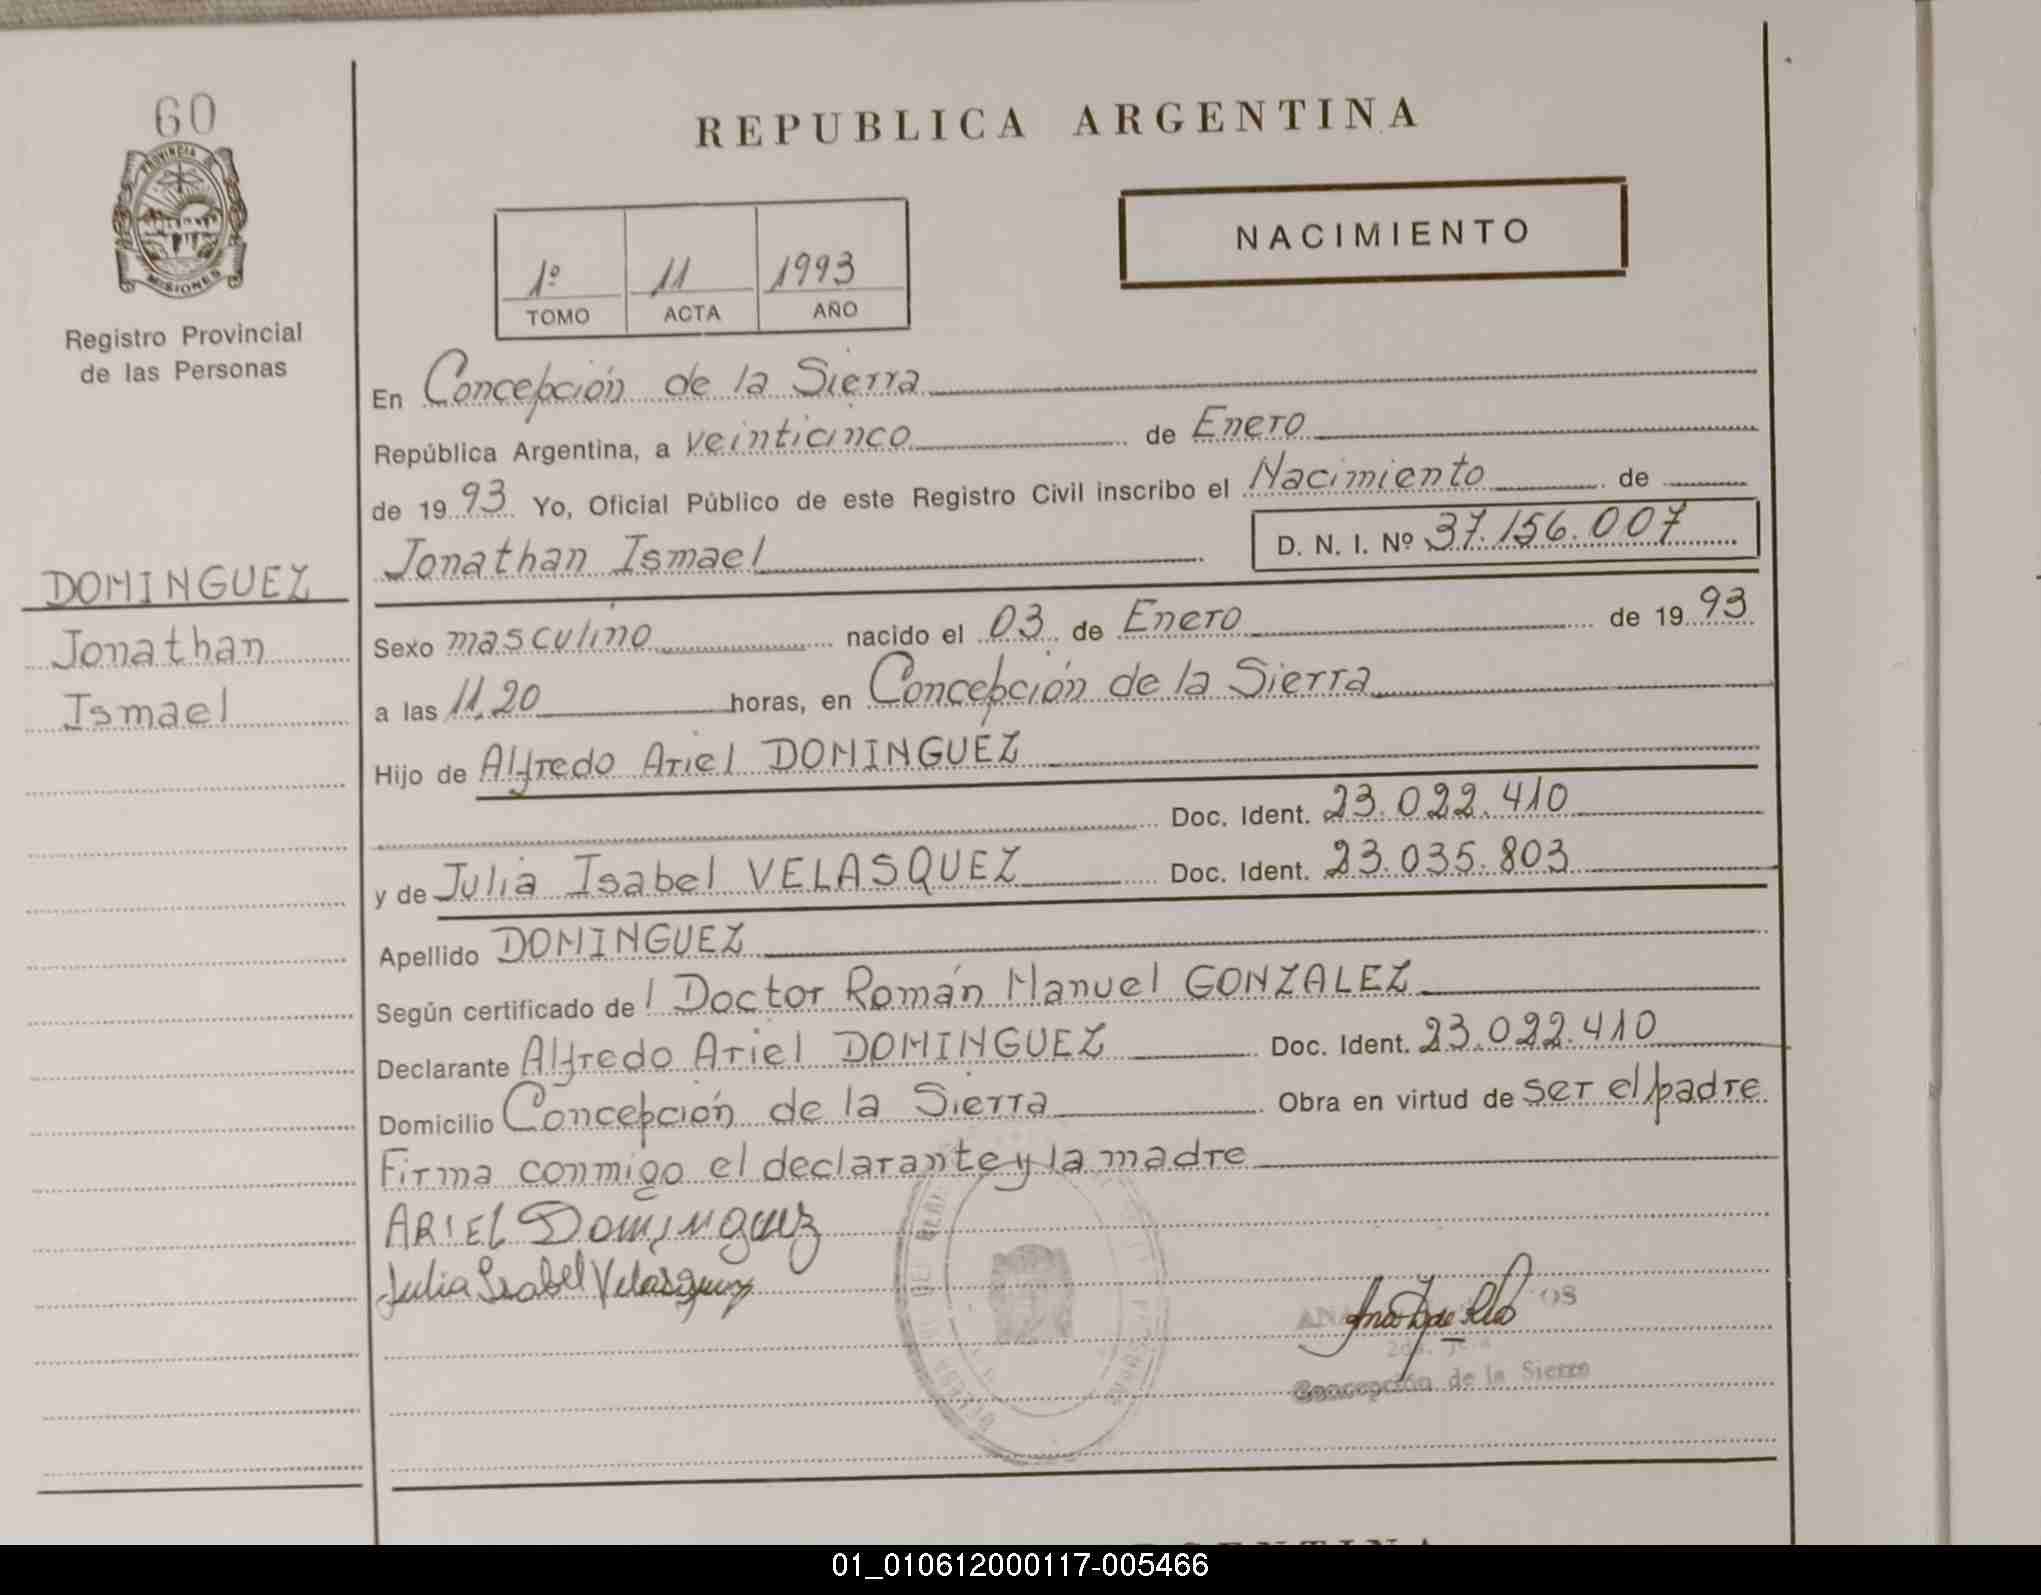 60
PROVINCIA
MISIONES
Registro Provincial
de las Personas
DOMINGUEZ
Jonathan
Ismael
REPUBLICA ARGENTINA
NACIMIENTO
1º 11 1993
TOMO ACTA AÑO
En Concepción de la Sierra
República Argentina, a veinticinco de Enero
de 1993 Yo, Oficial Público de este Registro Civil inscribo el Nacimiento de
Jonathan Ismael D. N. I. Nº 37.156.007
Sexo masculino nacido el 03 de Enero de 1993
a las 11,20 horas, en Concepción de la Sierra
Hijo de Alfredo Ariel DOMINGUEZ
Doc. Ident. 23.022.410
y de Julia Isabel VELASQUEZ Doc. Ident. 23.035.803
Apellido DOMINGUEZ
Según certificado del Doctor Román Manuel GONZALEZ
Declarante Alfredo Ariel DOMINGUEZ Doc. Ident. 23.022.410
Domicilio Concepción de la Sierra Obra en virtud de ser el padre
Firma conmigo el declarante y la madre
ARIEL DOMINGUEZ
Julia Isabel Velasquez
Concepción de la Sierra
01_010612000117-005466